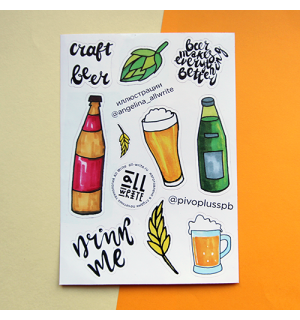 craft
beer
beer
makes
everything
better
иллюстрации
@angelina_allwrite
all
write
@pivoplusspb
Drink
me